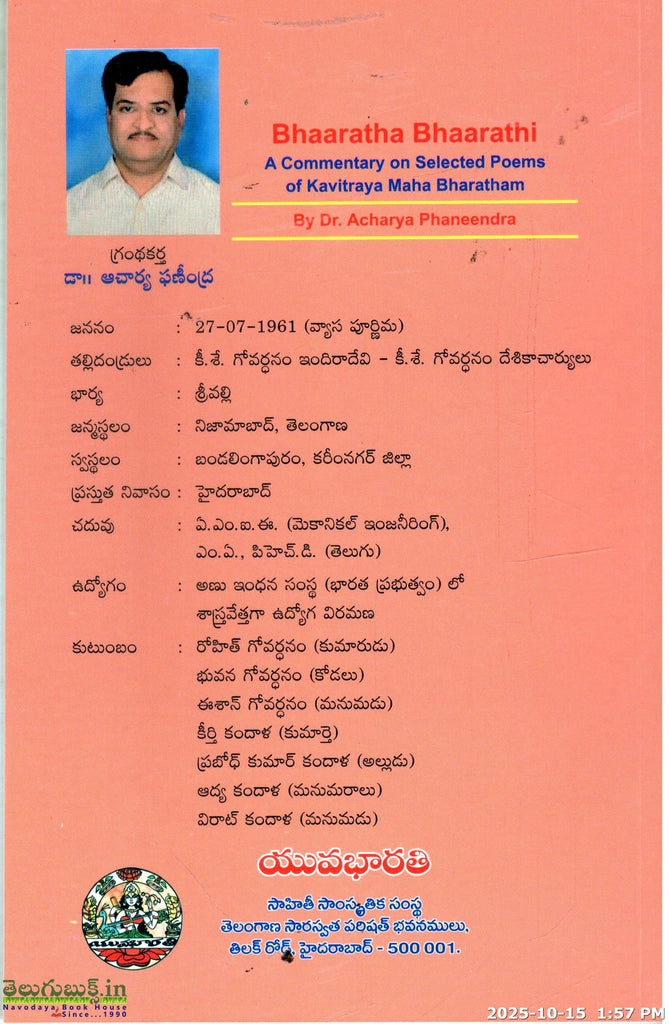 Bhaaratha Bhaarathi
A Commentary on Selected Poems
of Kavitraya Maha Bharatham
By Dr. Acharya Phaneendra
గ్రంథకర్త
డా॥ ఆచార్య ఫణీంద్ర
జననం : 27-07-1961 (వ్యాస పూర్ణిమ)
తల్లిదండ్రులు : కీ.శే. గోవర్ధనం ఇందిరాదేవి – కీ.శే. గోవర్ధనం దేశికాచార్యులు
భార్య : శ్రీవల్లి
జన్మస్థలం : నిజామాబాద్, తెలంగాణ
స్వస్థలం : బండలింగాపురం, కరీంనగర్ జిల్లా
ప్రస్తుత నివాసం : హైదరాబాద్
చదువు : ఏ.ఎం.ఐ.ఈ. (మెకానికల్ ఇంజనీరింగ్),
ఎం.ఏ., పిహెచ్.డి. (తెలుగు)
ఉద్యోగం : అణు ఇంధన సంస్థ (భారత ప్రభుత్వం) లో
శాస్త్రవేత్తగా ఉద్యోగ విరమణ
కుటుంబం : రోహిత్ గోవర్ధనం (కుమారుడు)
భువన గోవర్ధనం (కోడలు)
ఈశాన్ గోవర్ధనం (మనుమడు)
కీర్తి కందాళ (కుమార్తె)
ప్రబోధ్ కుమార్ కందాళ (అల్లుడు)
ఆద్య కందాళ (మనుమరాలు)
విరాట్ కందాళ (మనుమడు)
యువభారతి
సాహితీ సాంస్కృతిక సంస్థ
తెలంగాణ సారస్వత పరిషత్ భవనములు,
తిలక్ రోడ్, హైదరాబాద్ - 500 001.
యువభారతి
తెలుగుబుక్స్.in
Navodaya Book House
Since...1990
2025-10-15 1:57 PM